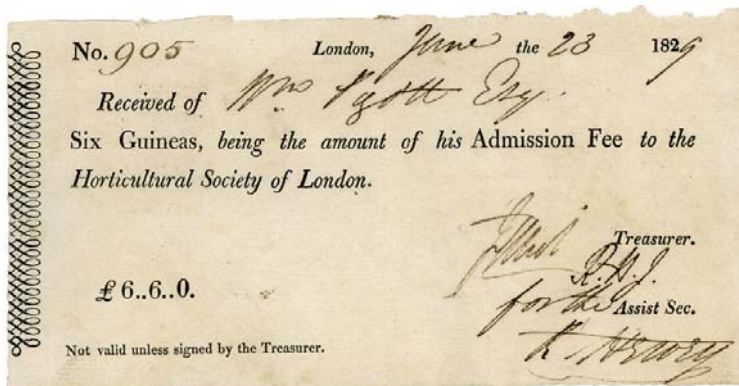 No. 905 London, June the 23 1829
Received of Wm Pigott Esq.
Six Guineas, being the amount of his Admission Fee to the
Horticultural Society of London.
Treasurer.
R. H. J.
£ 6..6..0.
for the Assist Sec.
Not valid unless signed by the Treasurer.